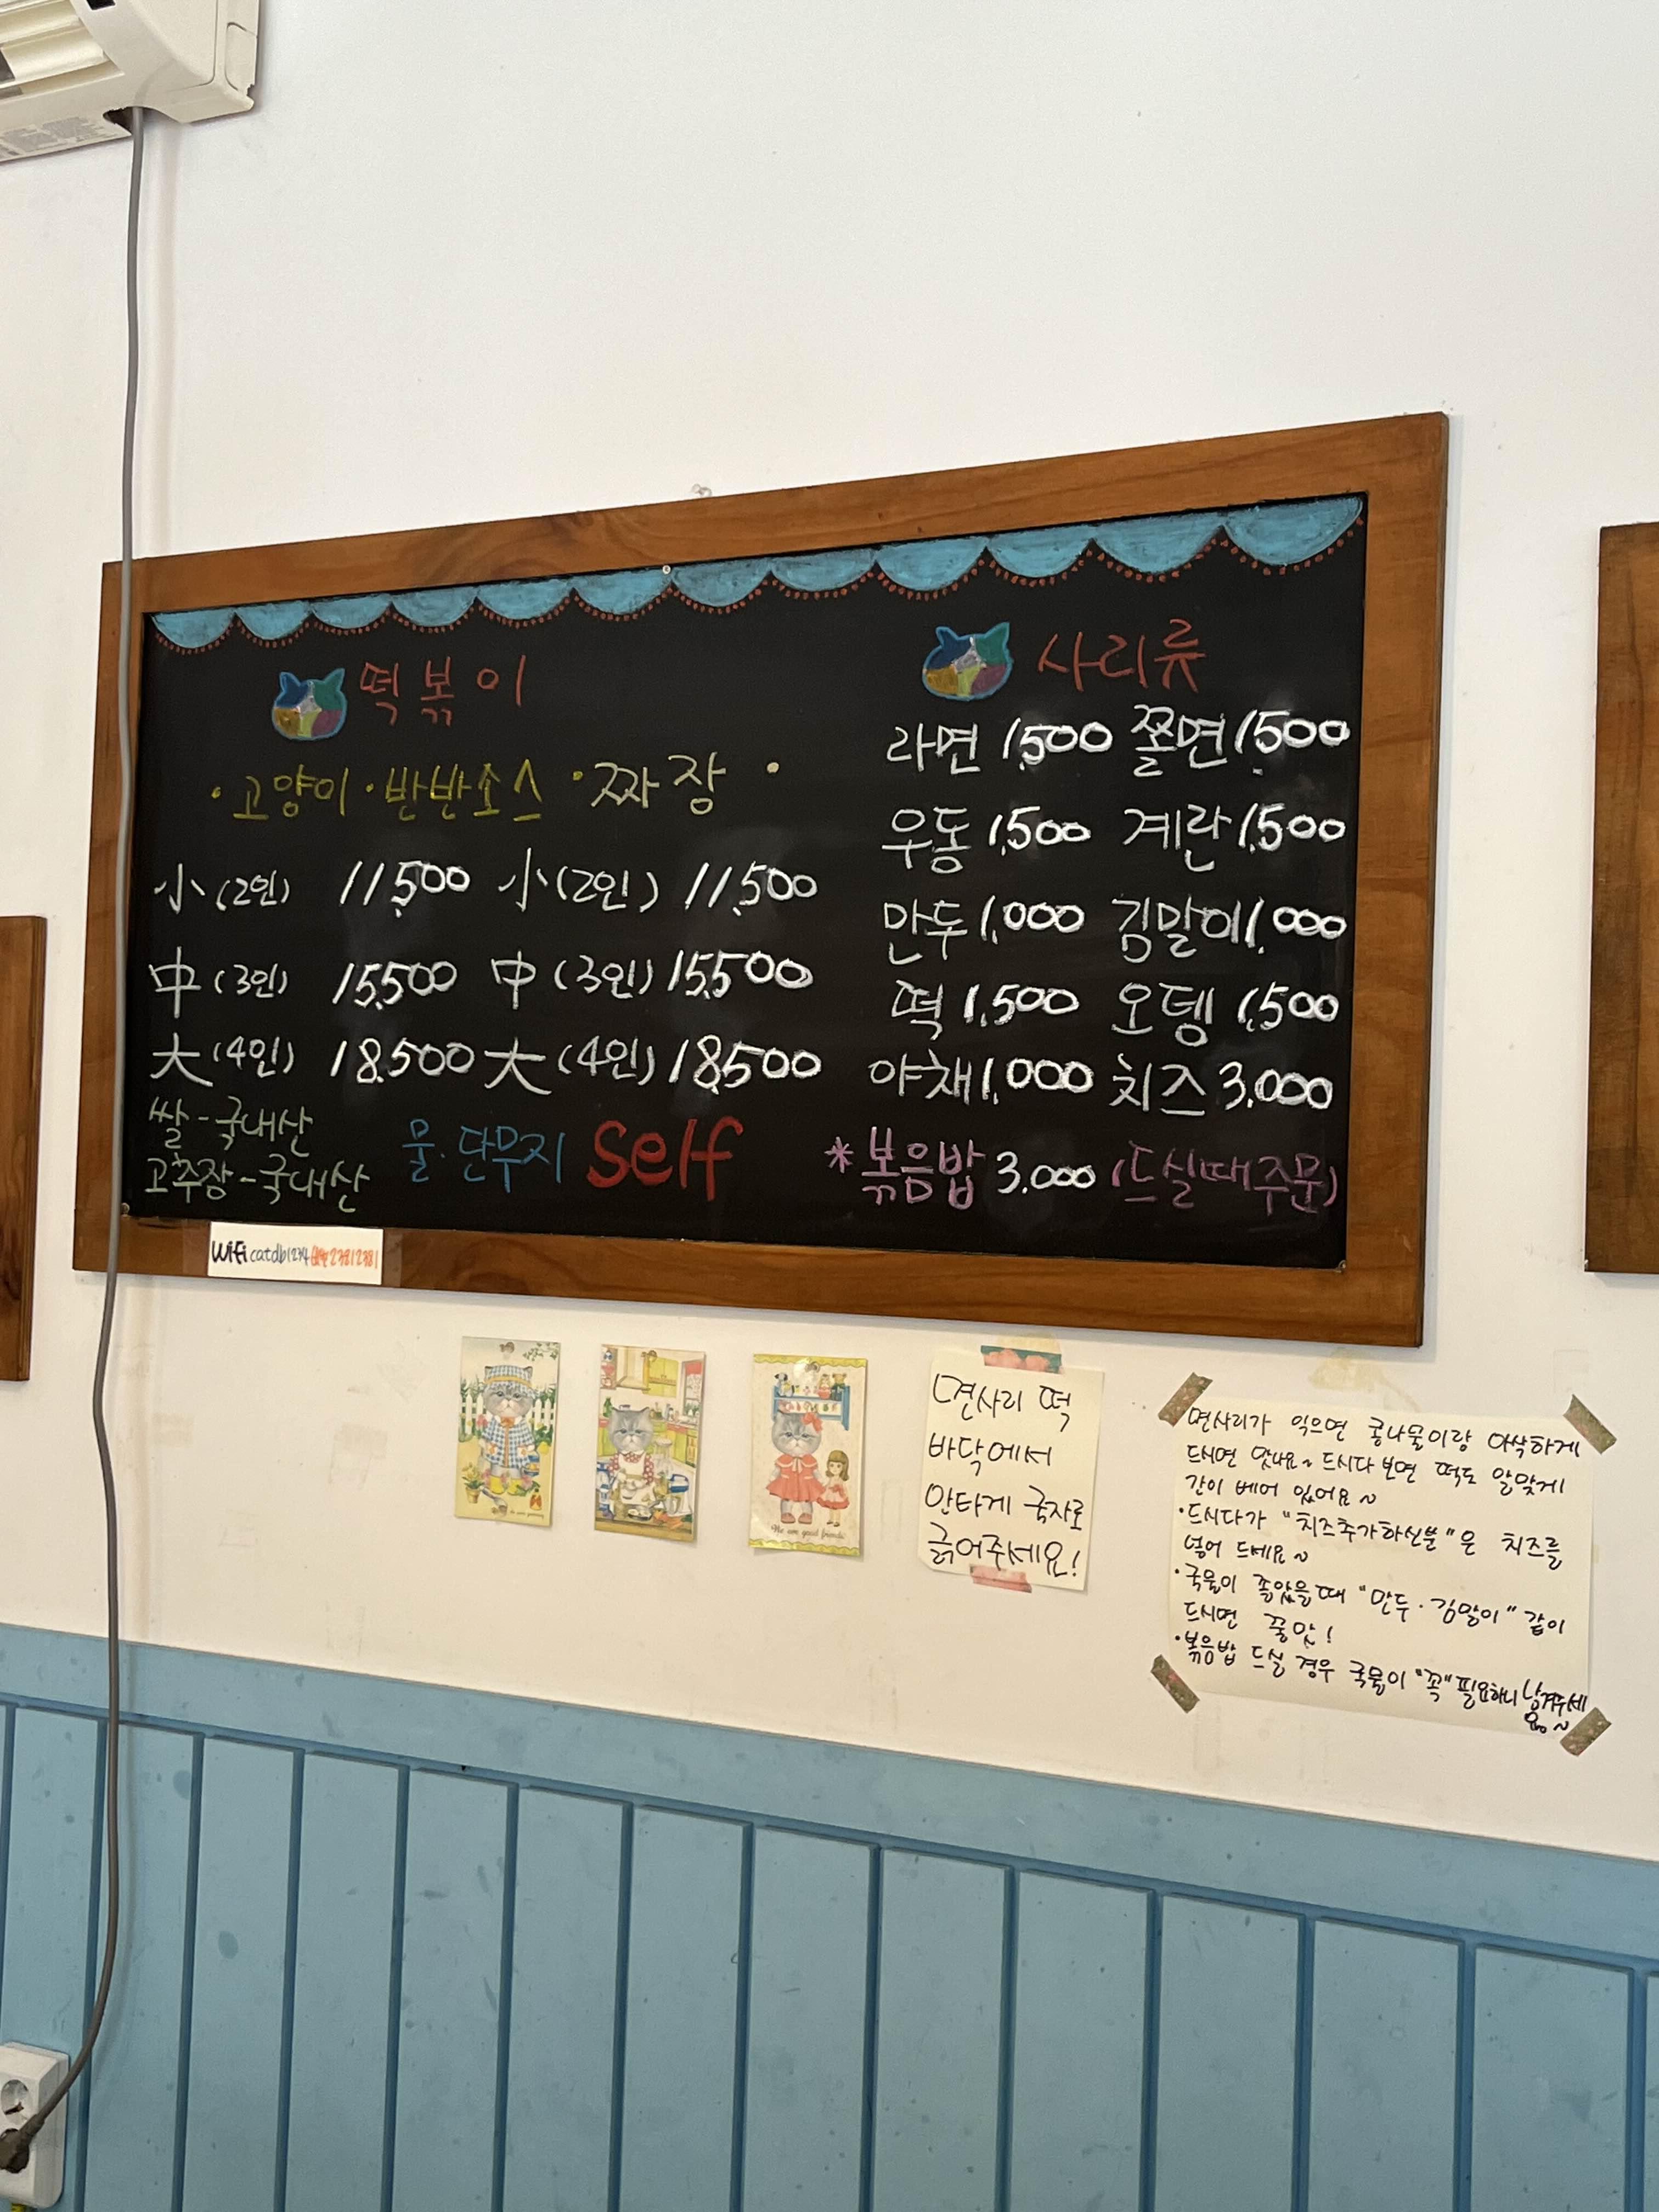 떡볶이
·고양이·반반소스·짜장·
小(2인) 11,500 小(2인) 11,500
中(3인) 15,500 中(3인) 15,500
大(4인) 18,500 大(4인) 18,500
쌀-국내산
고추장-국내산
물·단무지 self
사리류
라면 1,500 쫄면 1,500
우동 1,500 계란 1,500
만두 1,000 김말이 1,000
떡 1,500 오뎅 1,500
야채 1,000 치즈 3,000
*볶음밥 3,000 (드실때주문)
WiFi catdb1234 비번 23812381
We are good friends
면사리 떡
바닥에서
안타게 국자로
긁어주세요!
면사리가 익으면 콩나물이랑 아삭하게
드시면 맛나요~ 드시다 보면 떡도 알맞게
간이 베어 있어요~
·드시다가 "치즈추가하신분"은 치즈를
넣어 드세요~
·국물이 졸았을때 "만두·김말이" 같이
드시면 꿀맛!
·볶음밥 드실 경우 국물이 "꼭" 필요하니 남겨주세
용~